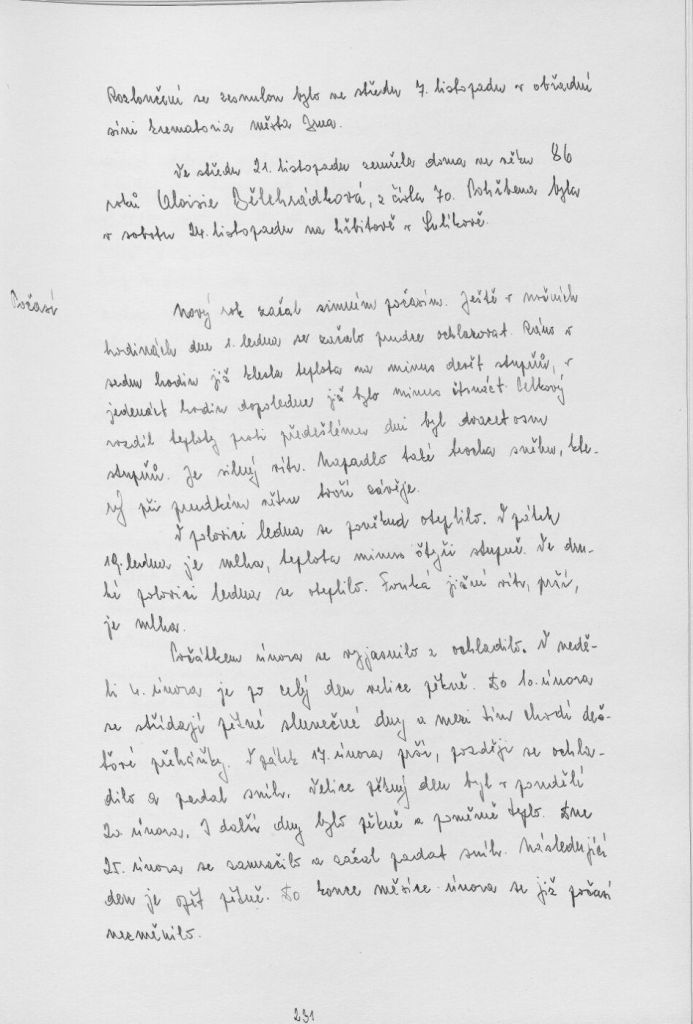 Rozloučení se zesnulou bylo ve středu 7. listopadu v obřadní
síni krematoria města Brna.
Ve středu 21. listopadu zemřela doma ve věku 86
roků Aloisie Bělehrádková, z čísla 70. Pohřbena byla
v sobotu 24. listopadu na hřbitově v Sulíkově.
Počasí
Nový rok začal zimním počasím. Ještě v nočních
hodinách dne 1. ledna se začalo prudce ochlazovat. Ráno v
sedm hodin již klesla teplota na minus deset stupňů, v
jedenáct hodin dopoledne již bylo minus čtrnáct. Celkový
rozdíl teploty proti předešlému dni byl dvacetosm
stupňů. Je silný vítr. Napadlo také trocha sněhu, kte-
rý při prudkém větru tvoří závěje.
V polovici ledna se poněkud oteplilo. V pátek
19. ledna je mlha, teplota minus čtyři stupně. Ve dru-
hé polovici ledna se oteplilo. Fouká jižní vítr, prší,
je mlha.
Počátkem února se vyjasnilo a ochladilo. V nedě-
li 4. února je po celý den velice pěkně. Do 10. února
se střídají pěkné slunečné dny a mezi tím chodí deš-
ťové přeháňky. V pátek 17. února prší, později se ochla-
dilo a padal sníh. Velice pěkný den byl v pondělí
20. února. I další dny bylo pěkně a poměrně teplo. Dne
25. února se zamračilo a začal padat sníh. Následující
den je opět pěkně. Do konce měsíce února se již počasí
nezměnilo.
231